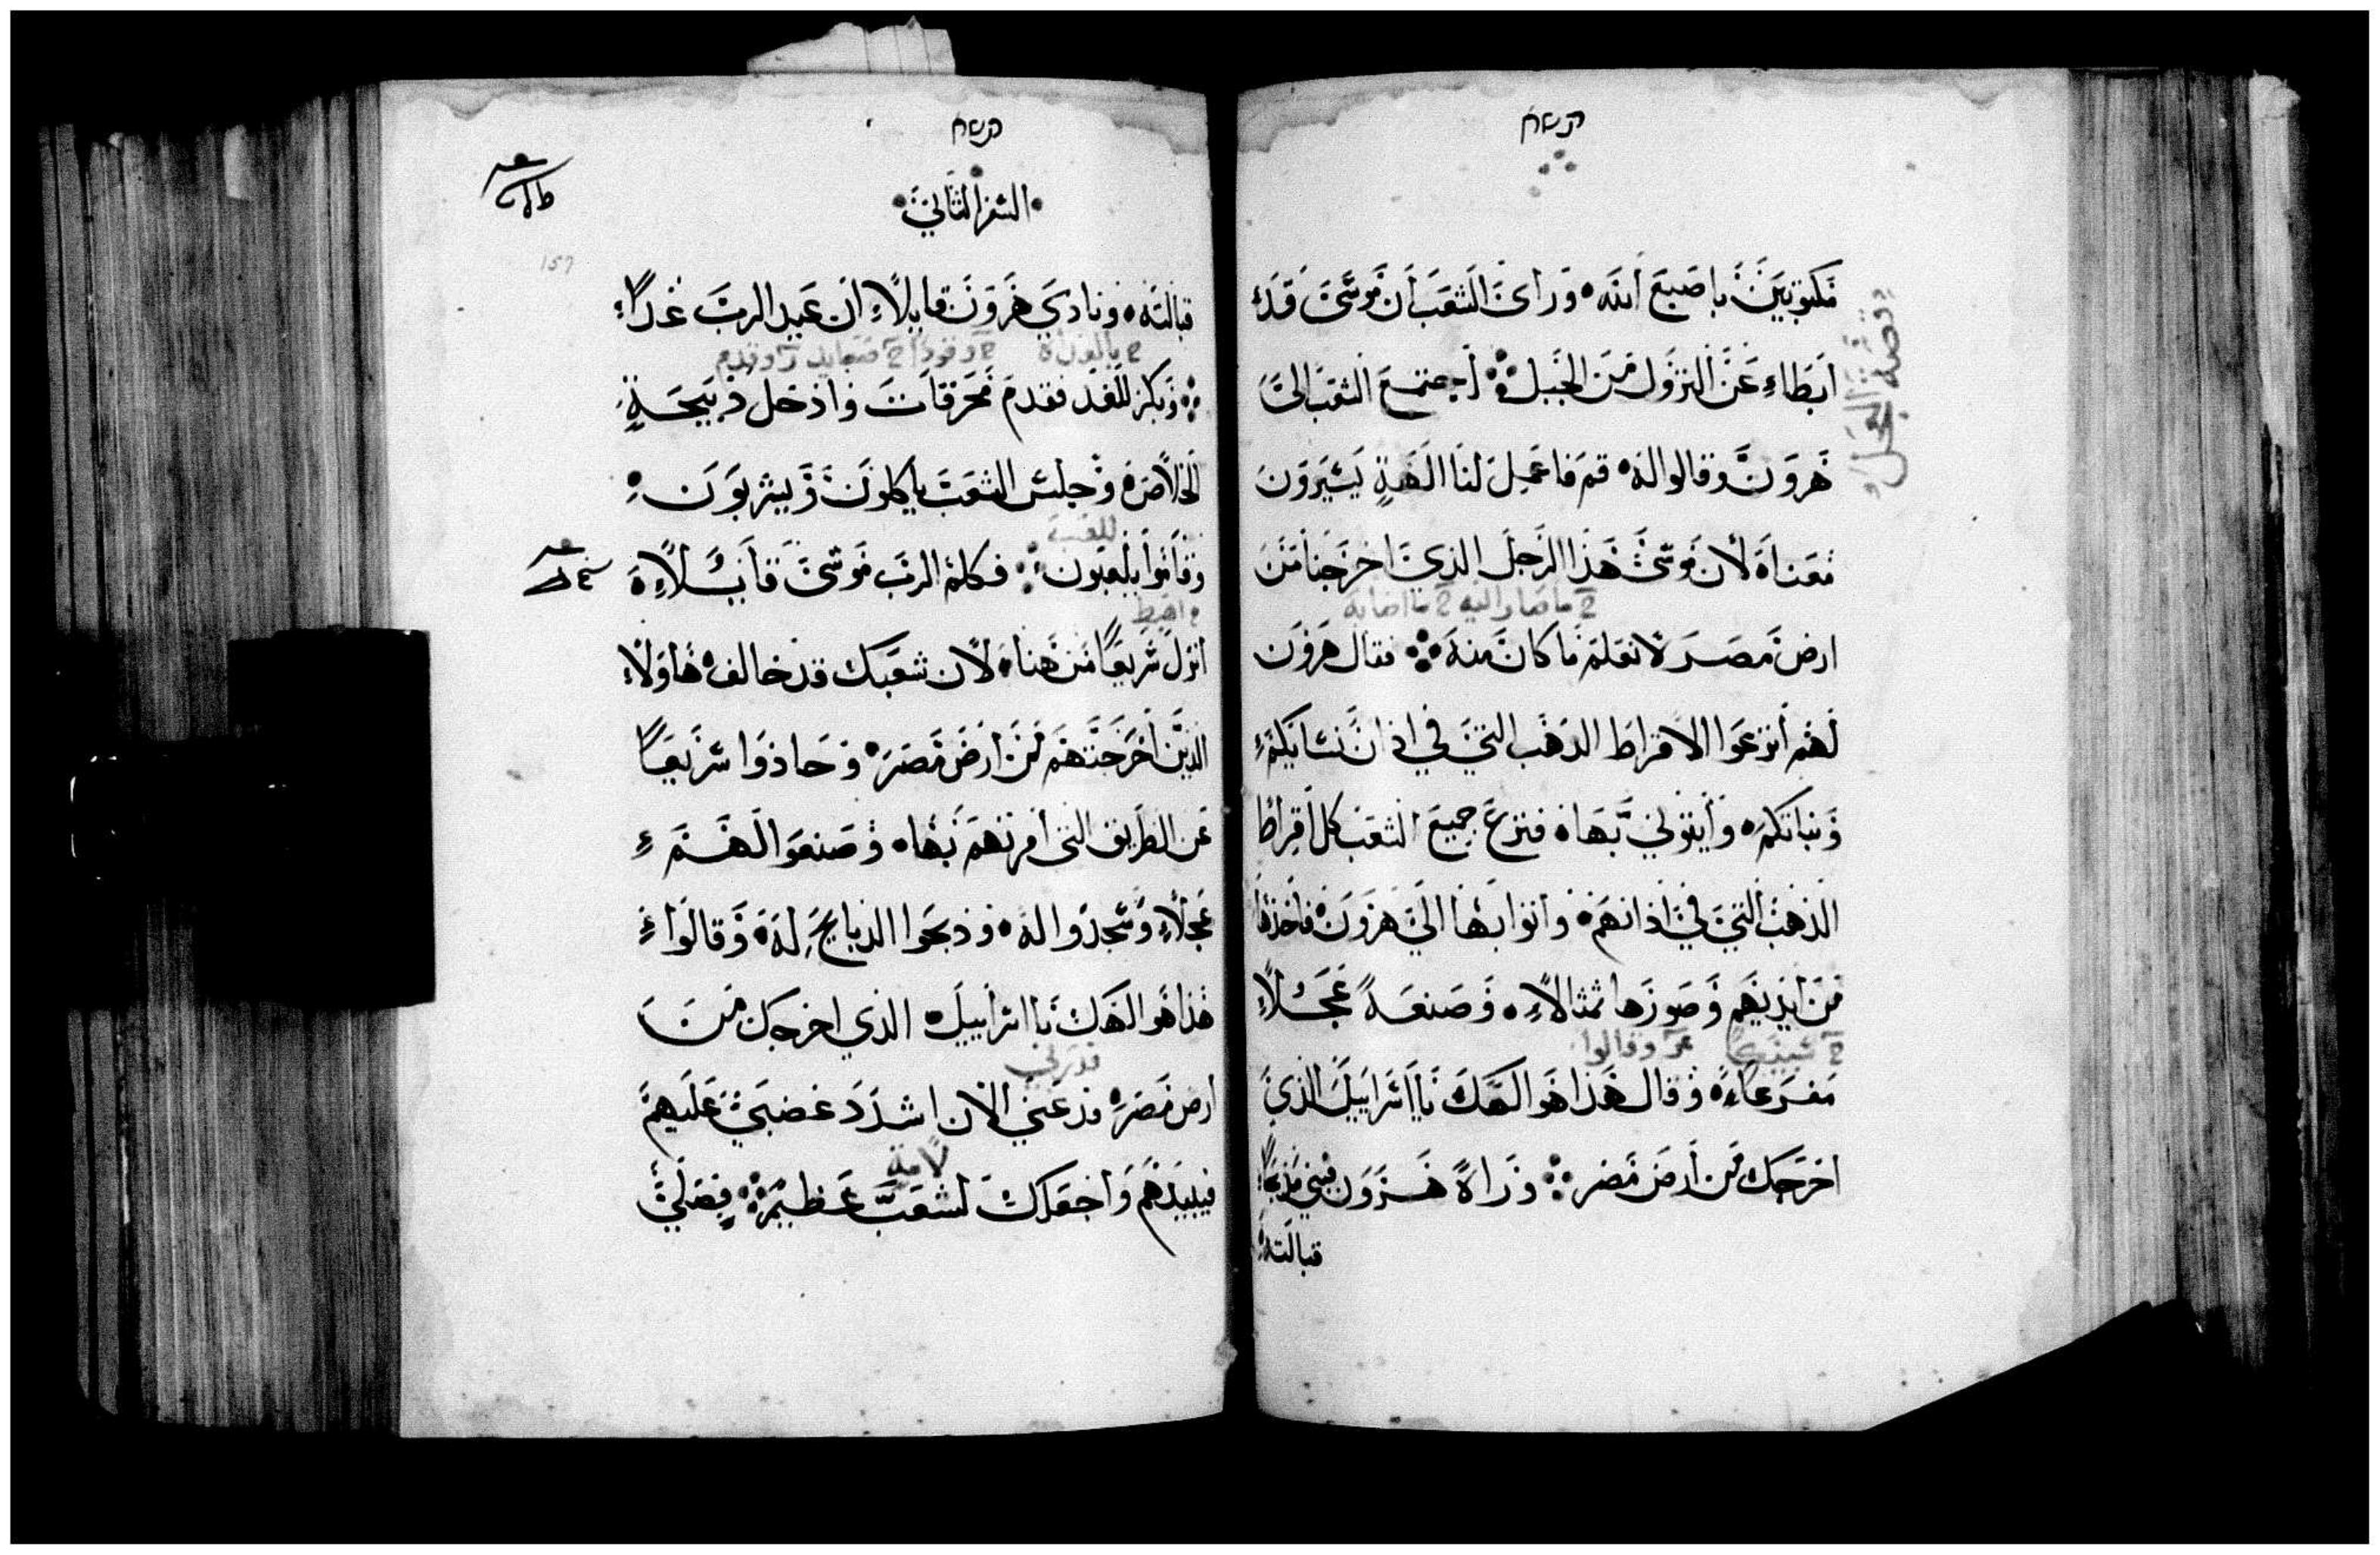 مكتوبين باصبع الله وراى الشعب أن موسى قد
ابطاء عن النزول من الجبل اجتمع الشعب الى
هرون وقالوا له قم فاعمل لنا الهة يسيرون
معنا لان موسى هذا الرجل الذي اخرجنا من
ح ما صار اليه ح ما اصابه
ارض مصر لا نعلم ما كان منه فقال هرون
لهم أنزعوا الاقراط الذهب التي في اذان نسايكم
وبناتكم وأيتوني بها فنزع جميع الشعب كل اقراط
الذهب التي في اذانهم واتوا بها الى هرون فاخذها
من ايديهم وصورها تمثالاً وصنعه عجلاً
وقالوا
مفرغاً وقال هذا هو الهك يا اسراييل الذي
اخرجك من أرض مصر وراه هرون فبني مذبحاً
قبالته
قصة العجل
السفر الثاني
157
قبالته ونادي هرون قايلاً ان عيد الرب غداً
وقدم
وبكر للغد فقدم محرقات وادخل ذبيحة
الخلاص وجلس الشعب ياكلون ويشربون
وقاموا يلعبون فكلم الرب موسى قايلاً
اهبط
انزل سريعاً من هنا لان شعبك قد خالف هاولا
الذين اخرجتهم من ارض مصر وحاذوا سريعاً
عن الطريق التي أمرتهم بها وصنعوا لهم
عجلاً وسجدوا له وذبحوا الذبايح له وقالوا
هذا هو الهك يا اسراييل الذي اخرجك من
ارض مصر فدعني الان اشدد غضبي عليهم
لامة
فيبيدهم واجعلك لشعب عظيم فصلي